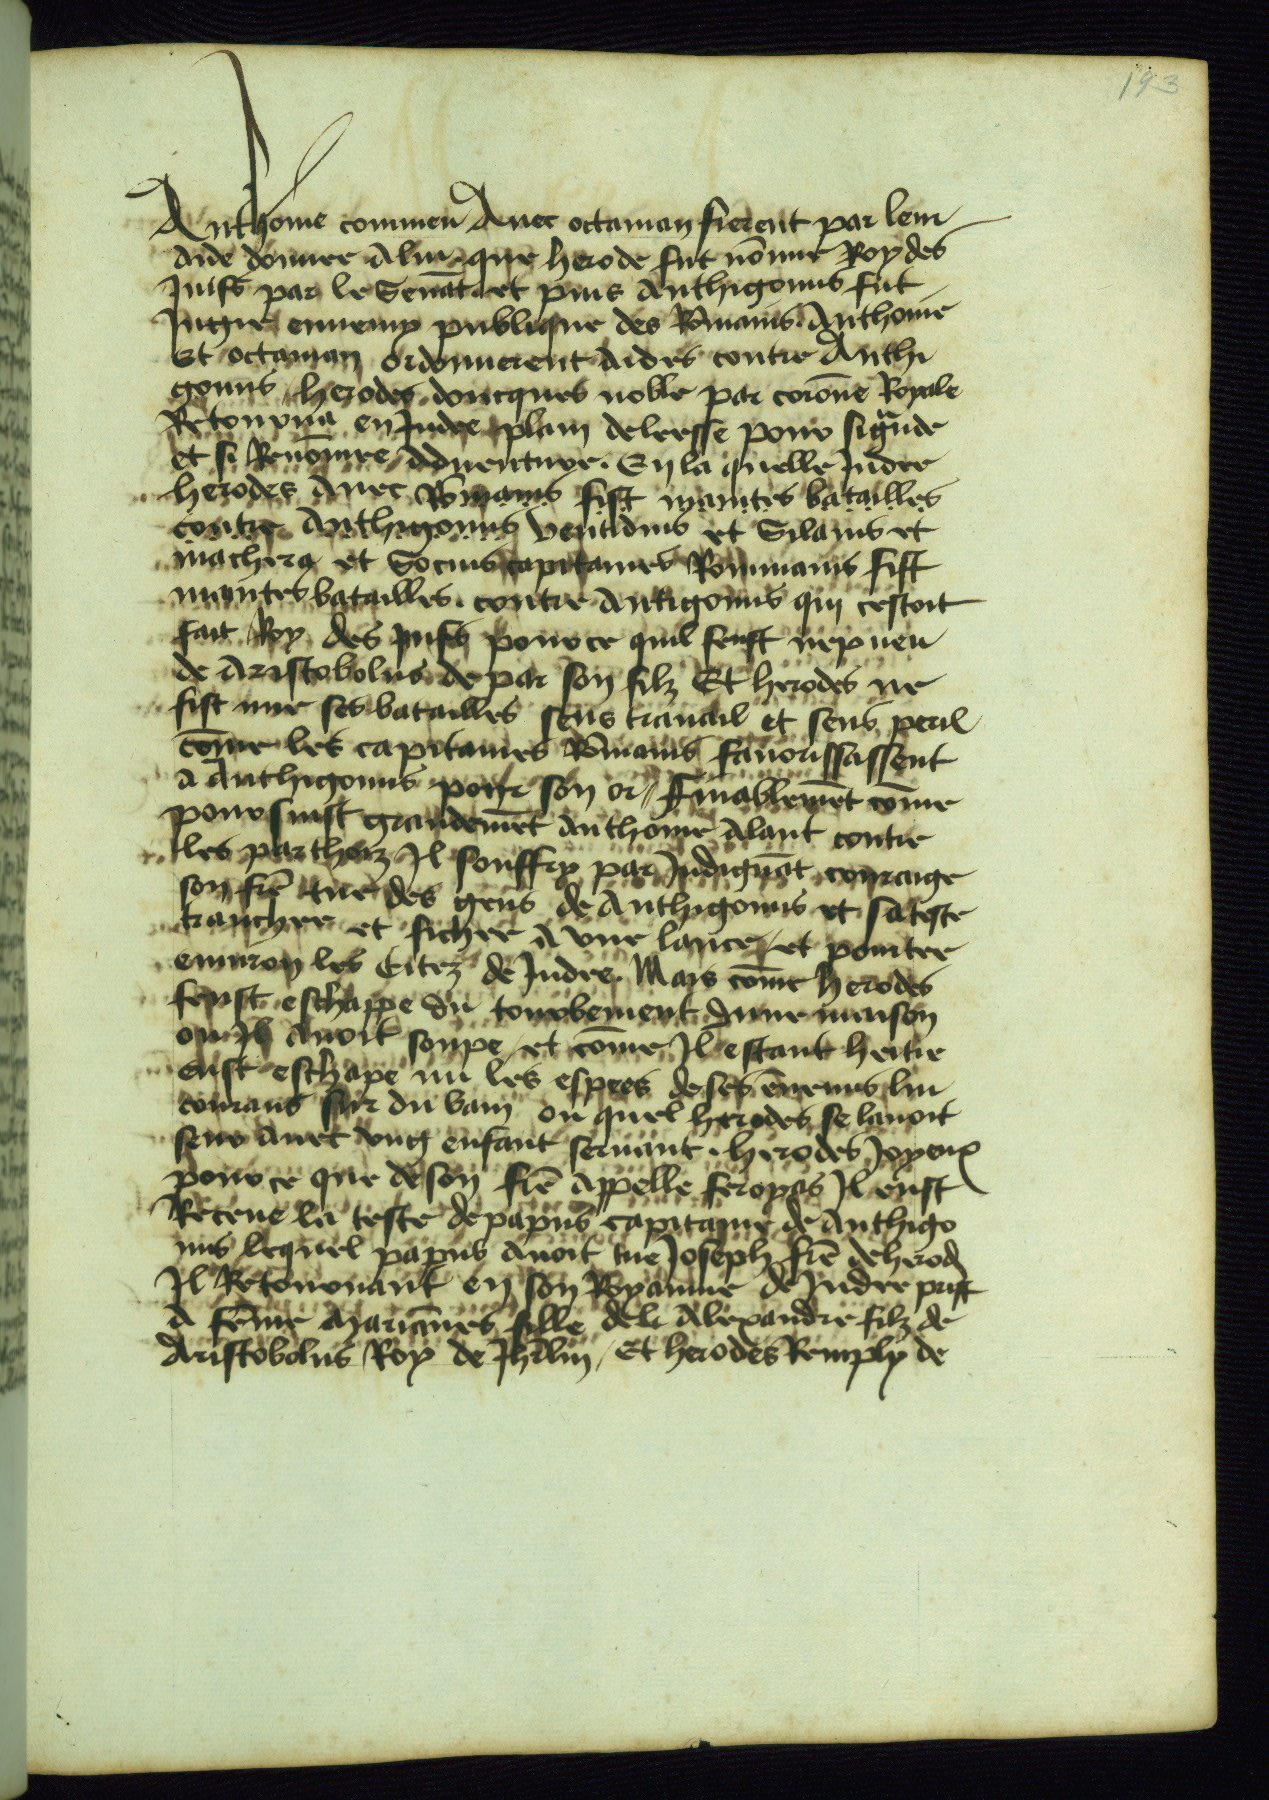 193
Anthoine commeu Avec octavian firent par leur
aide donnee A luy que herode fut nōme Roy des
Juifs par le Senat et puis Anthigonus fut
Jugie ennemy publique des Rōmains. Anthoine
Et octavian ordonnerent Aides contre Anthi
gonus herodes doncques noble par corōne Royale
Retourna en Judee plain de leesse pour si grāde
et si Renōmee Adventure. En la quelle Judee
herodes Avec Rōmains fist maintes batailles
contre Anthigonus Ventidius et Silanus et
machera et Socius capitaines Rommains fist
maintes batailles. contre Antigonus qui cestoit
fait Roy des Juifs pour ce quil feust nepueu
de Aristobolus de par son filz Et herodes ne
fist mie ses batailles sens travail et sens peril
cōme les capitaines Rōmains favorissassent
a Anthigonus pour son or // Finablemēt cōme
poursuist grandemēt Anthoine Alant contre
les parthez Il souffry par Indignāt couraige
son frē tue des gens de Anthigonus et sa teste
tranchee et fichee A une lance et pointee
environ les Citez de Judee. Mais cōme herodes
feust eschappe du tourbement dune maison
ou Il Avoit soupe et cōme Il estant heitie
eust eschape nu les espees de ses ēnemis lui
courans sur du bain ou quel herodes se lavoit
seur Avec ung enfant servant. herodes Joyeux
pour ce que de son frē Appelle feropas Il eust
Receue la teste de papus capitaine de Anthigo
nus lequel papus Avoit tue Joseph frē de herod
Il Retournant en son Royaume de Judee prist
A fēme Mariānes fille de Alexandre filz de
Aristobolus Roy de Jhrlm / Et herodes Remply de